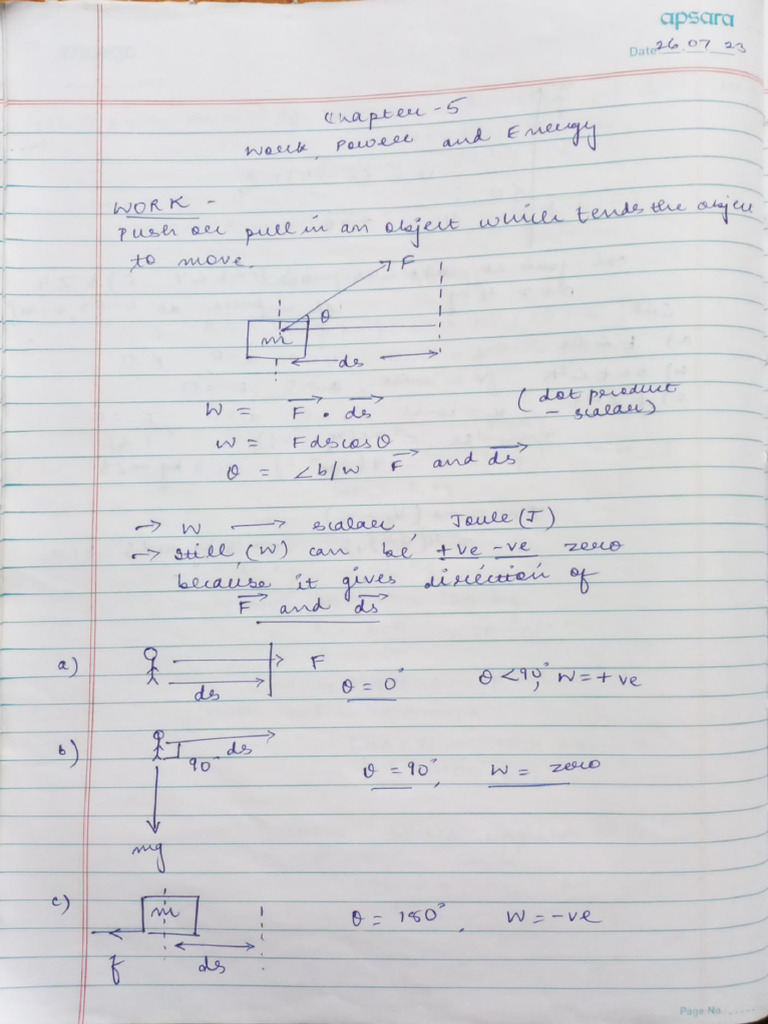 apsara
Date 26.07.23
Chapter-5
Work, Power and Energy
WORK -
Push or pull in an object which tends the objec
to move.
F
θ
m
ds
W = F . ds (dot product
- scalar)
W = Fdscosθ
θ = ∠b/w F and ds
→ W → scalar Joule (J)
→ Still (W) can be +ve -ve zero
because it gives direction of
F and ds
a) F
ds θ = 0° θ < 90°, W = +ve
b) ds
90 θ = 90°, W = zero
mg
c) m θ = 180°, W = -ve
f ds
Page No.